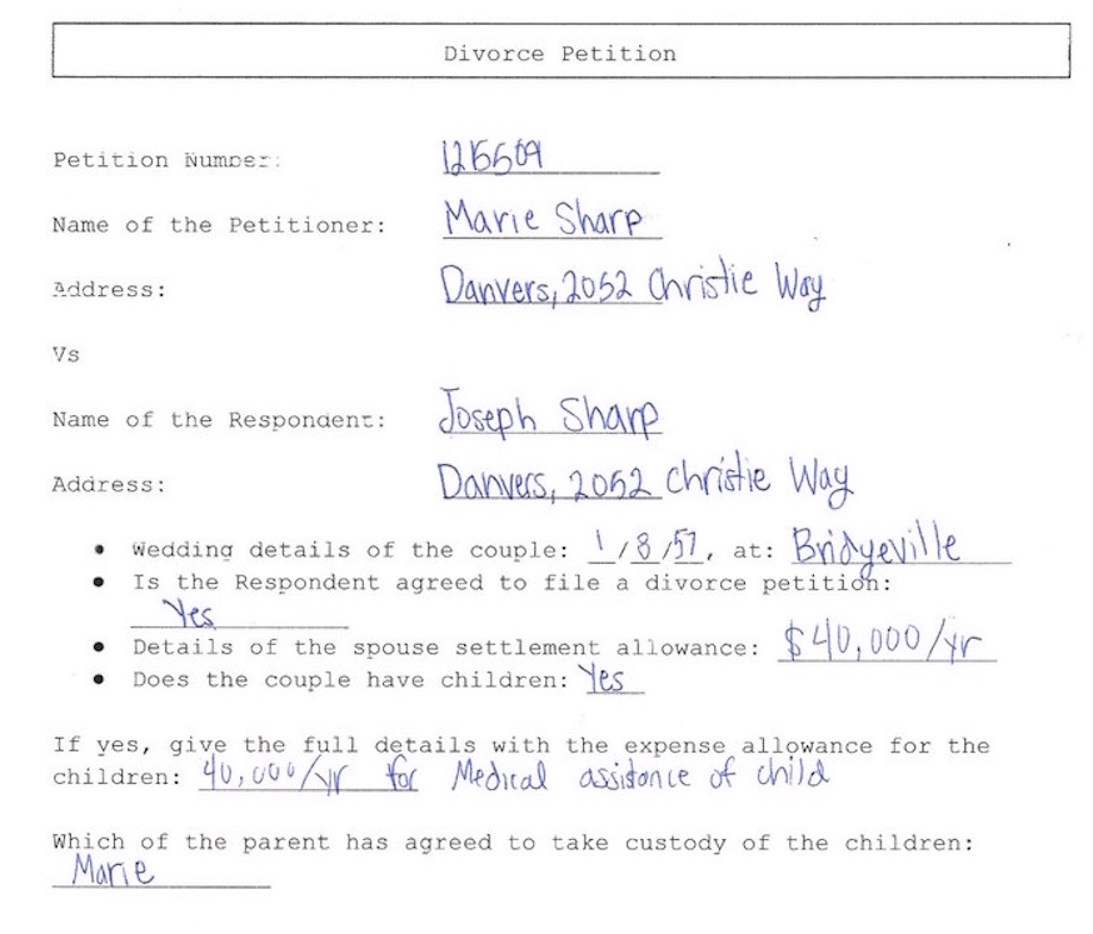 Divorce Petition
Petition Number:
Name of the Petitioner: Marie Sharp
Address: Danvers, 2052 Christie Way
Vs
Name of the Respondent: Joseph Sharp
Address: Danvers, 2052 Christie Way
• Wedding details of the couple: 1/8/57, at: Bridgeville
• Is the Respondent agreed to file a divorce petition:
Yes
• Details of the spouse settlement allowance: $40,000/yr
• Does the couple have children: Yes
If yes, give the full details with the expense allowance for the
children: 40,000/yr for Medical assistance of child
Which of the parent has agreed to take custody of the children:
Marie